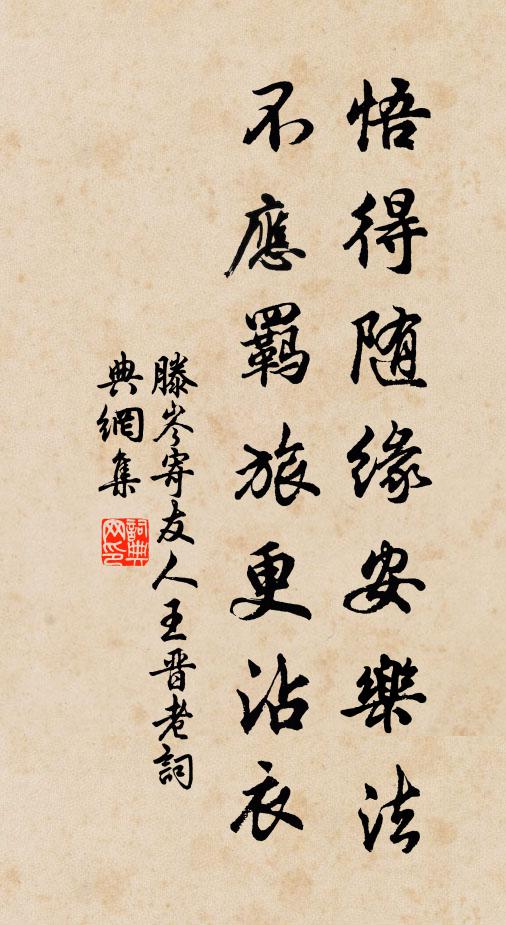 悟得随緣安樂法
不應羈旅更沾衣
滕岑寄友人王晋老詞
典網集
詞典
网印